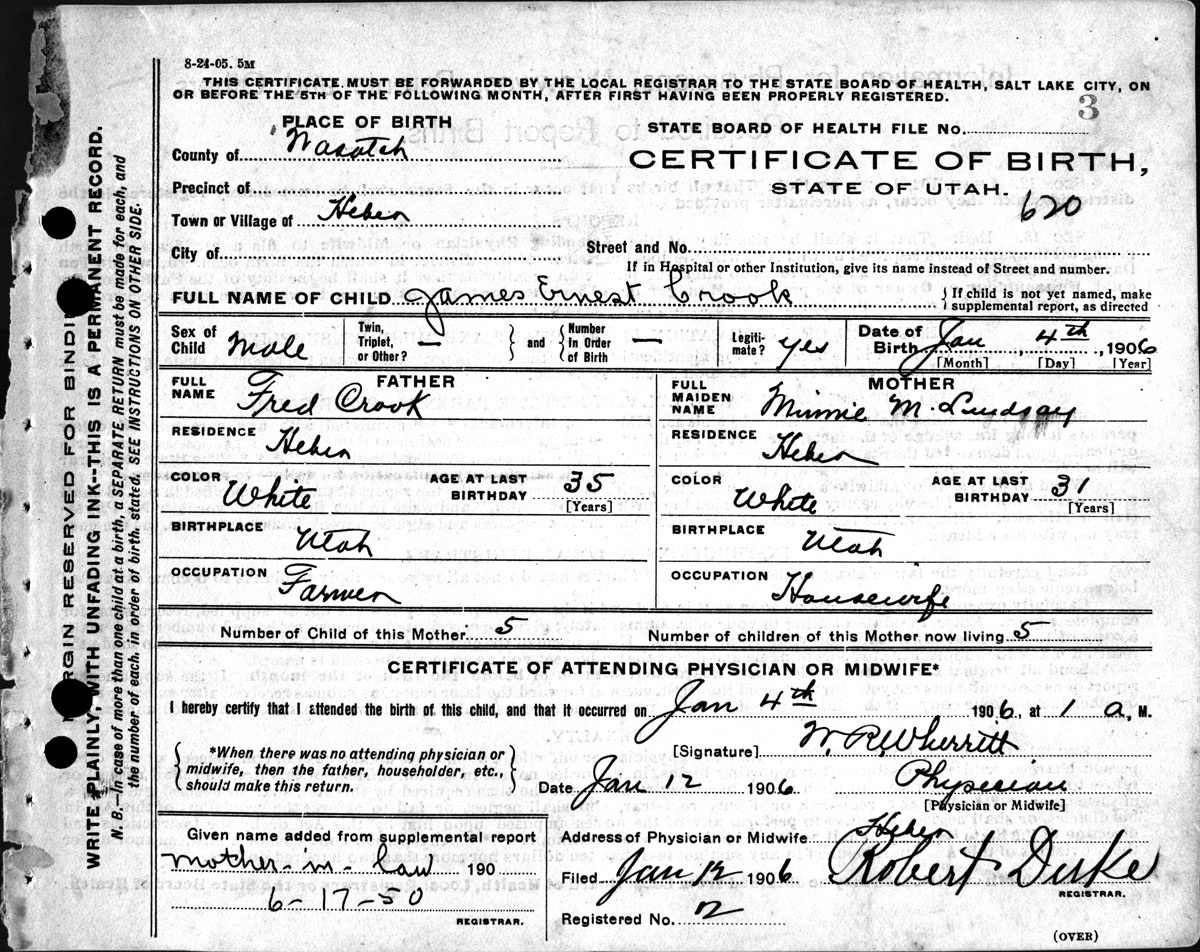 8-24-05. 5M
THIS CERTIFICATE MUST BE FORWARDED BY THE LOCAL REGISTRAR TO THE STATE BOARD OF HEALTH, SALT LAKE CITY, ON
OR BEFORE THE 5TH OF THE FOLLOWING MONTH, AFTER FIRST HAVING BEEN PROPERLY REGISTERED.
3
PLACE OF BIRTH
STATE BOARD OF HEALTH FILE No.
County of Wasatch
CERTIFICATE OF BIRTH,
Precinct of
STATE OF UTAH.
620
Town or Village of Heber
City of
Street and No.
If in Hospital or other Institution, give its name instead of Street and number.
FULL NAME OF CHILD James Ernest Crook
If child is not yet named, make supplemental report, as directed
Sex of Child Male Twin, Triplet, or Other? — and Number in Order of Birth — Legitimate? yes Date of Birth Jan 4th, 1906
[Month] [Day] [Year]
FATHER
FULL NAME Fred Crook
RESIDENCE Heber
COLOR White AGE AT LAST BIRTHDAY 35
[Years]
BIRTHPLACE Utah
OCCUPATION Farmer
MOTHER
FULL MAIDEN NAME Minnie M. Lindsay
RESIDENCE Heber
COLOR White AGE AT LAST BIRTHDAY 31
[Years]
BIRTHPLACE Utah
OCCUPATION Housewife
Number of Child of this Mother 5 Number of children of this Mother now living 5
CERTIFICATE OF ATTENDING PHYSICIAN OR MIDWIFE*
I hereby certify that I attended the birth of this child, and that it occurred on Jan 4th 1906, at 1 a, M.
*When there was no attending physician or
midwife, then the father, householder, etc.,
should make this return.
[Signature] W. R. Wherritt
Date Jan 12 1906 Physician
[Physician or Midwife]
Given name added from Supplemental report
mother-in-law 190
6-17-50
REGISTRAR.
Address of Physician or Midwife Heber
Filed Jan 12 1906 Robert Duke
REGISTRAR.
Registered No. 2
(OVER)
MARGIN RESERVED FOR BINDING
WRITE PLAINLY, WITH UNFADING INK--THIS IS A PERMANENT RECORD.
N. B.—In case of more than one child at a birth, a SEPARATE RETURN must be made for each, and
the number of each, in order of birth, stated. SEE INSTRUCTIONS ON OTHER SIDE.